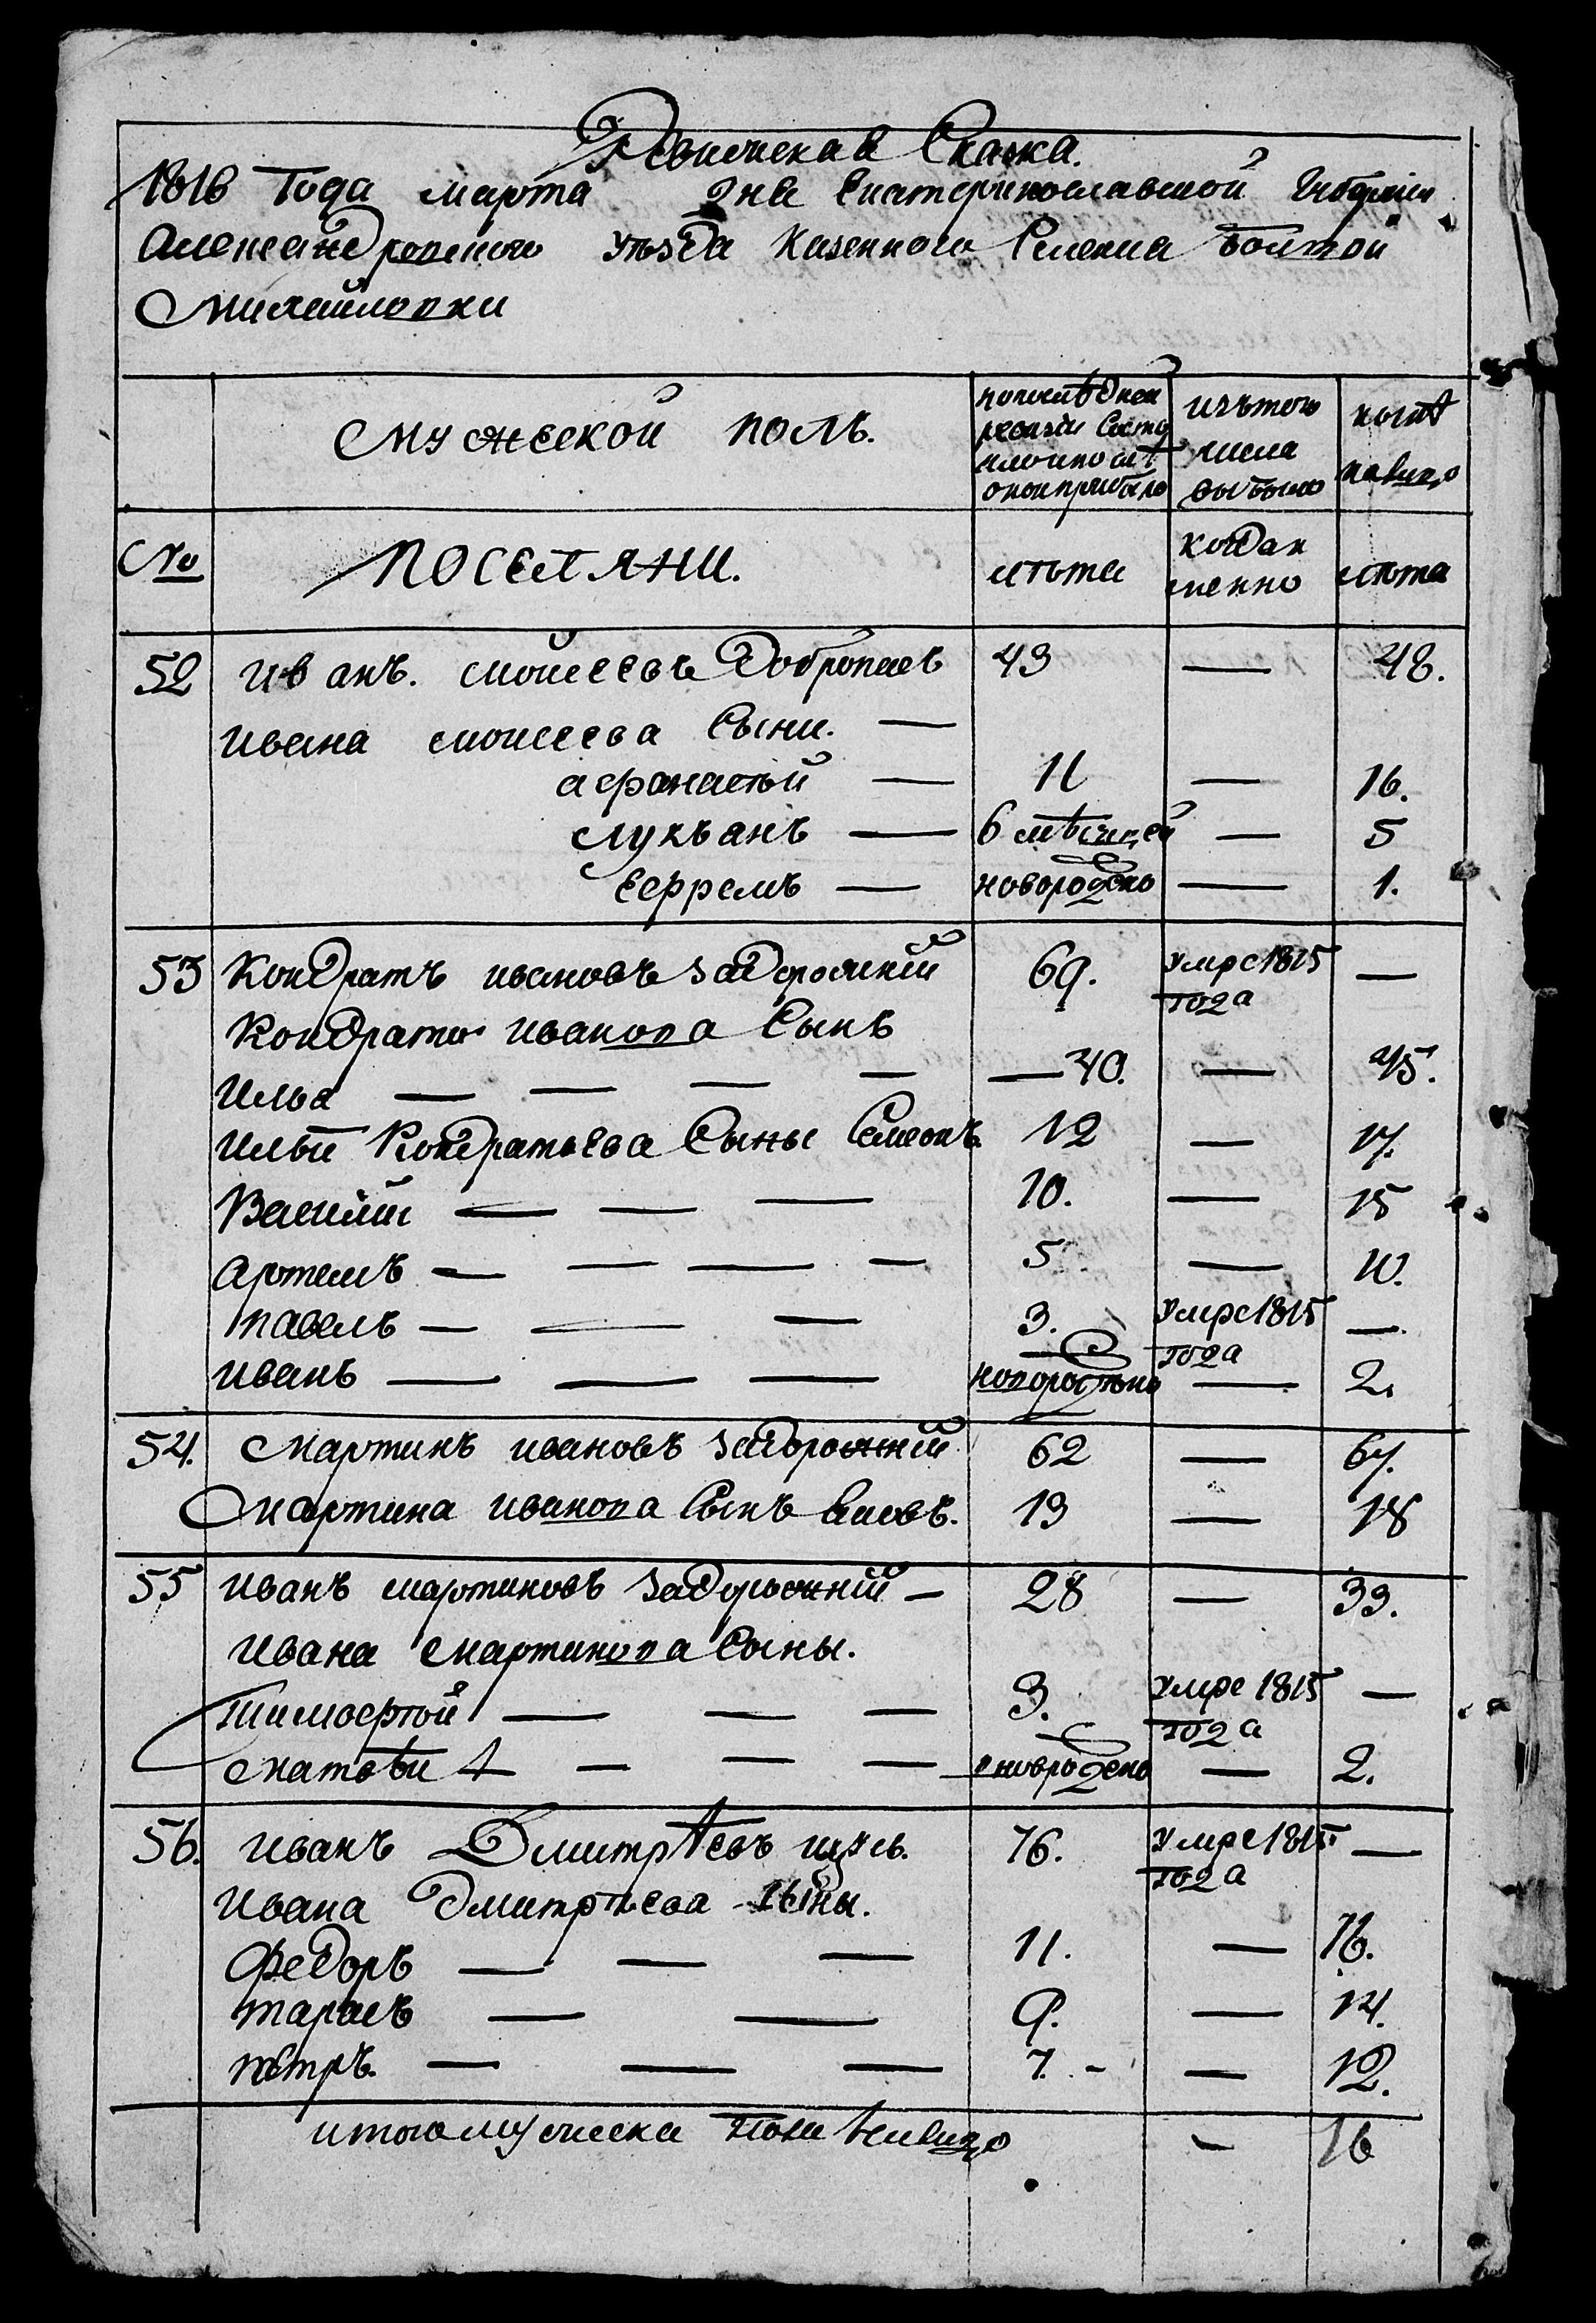 Ревижская Сказка.
1816 Года марта дня Екатеринославской Губерніи
Александровского уѣзда Казенного Селения Болшой
Михайловки
Мужеской полъ.
попослѣдней ревизіи состо яло и послѣ оной прибыло
изътого числа выбыло
нынѣ налицо
№ ПОСЕЛЯНИ. лѣта когда имянно лѣта
52 Иванъ. Мойсеевъ Добропасъ 43 — 48.
Ивана Моисеева Сыни. —
афанастій — 11 — 16.
Лукъанъ — 6 мѣсицей — 5
Ееффремъ — новорождено — 1.
53 Кондратъ ивановъ Задорожній 69. умре 1815 года —
Кондрата Иванова Сынъ
Илья — — — — 40. — 45.
Ильи Кондратьева Сыны Семеонъ 12 — 17.
Василій — — — 10. — 15
Артемъ — — — — 5 — 10.
Павелъ — — — 3. умре 1815 года —
Иванъ — — — новорождено — 2.
54. Мартинъ ивановъ Задорожній 62 — 67.
Мартина Иванова Сынъ 13 — 18
55 Иванъ мартиновъ Задорожній — 28 — 33.
Ивана Мартинова Сыны.
Тимоерти́й — — — 3. умре 1815 года —
Матвѣи — — — — новорождено — 2.
56. Иванъ Дмитрѣевъ 76. умре 1815 года —
Ивана Дмитрѣева Сыны.
Федоръ — — — 11. — 16.
Тарасъ — — 9. — 14.
Пётръ. — — — 7. — — 12.
итого мужеска пола налицо — 16